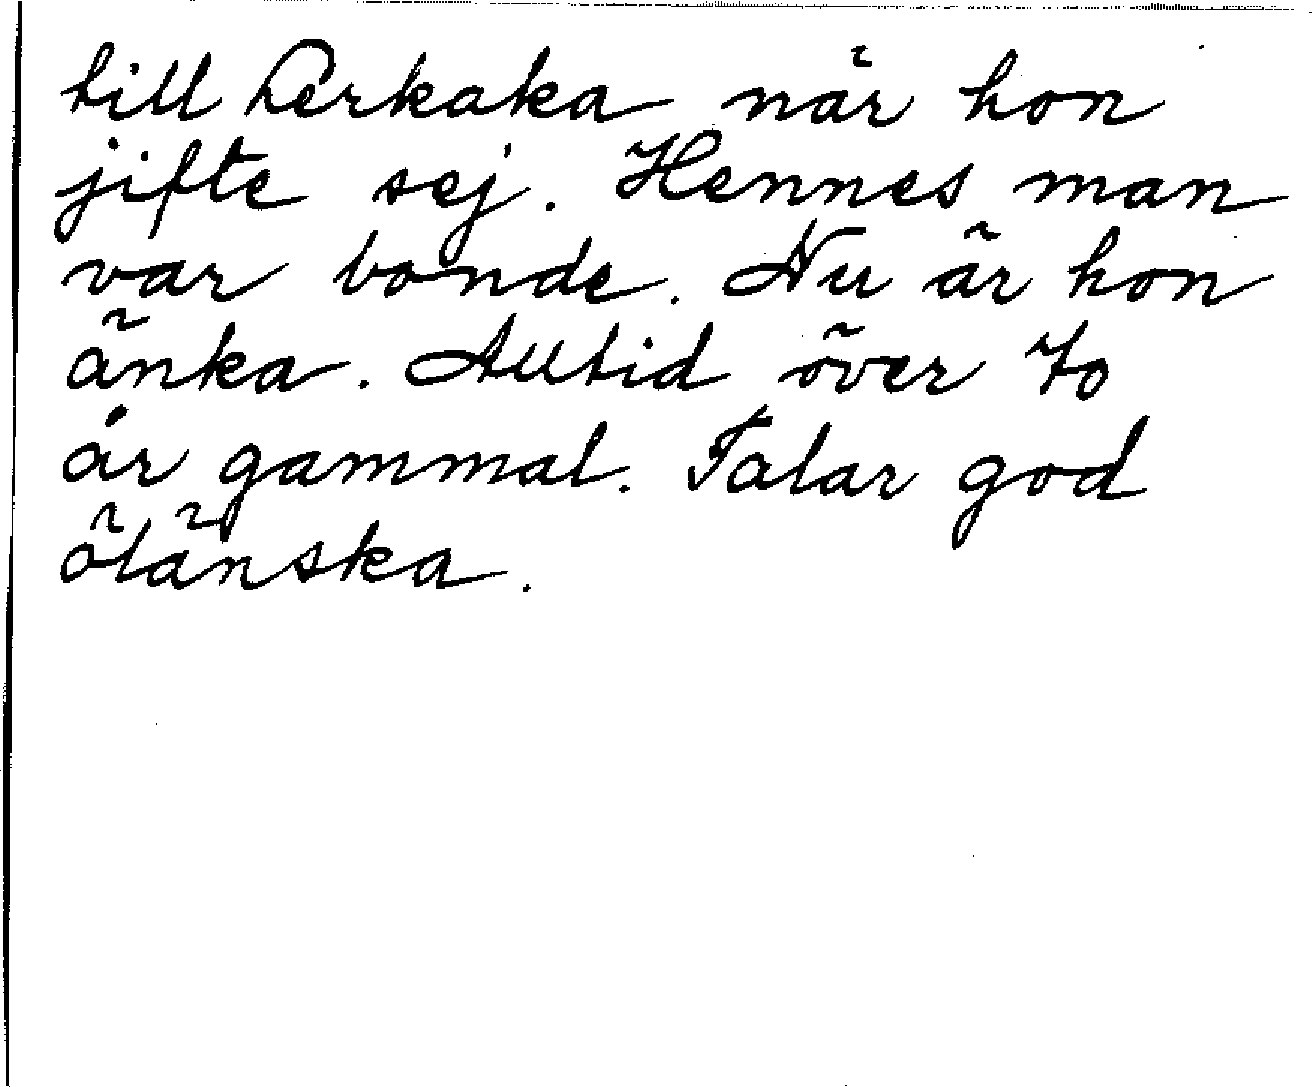 till Lerkaka när hon
jifte sej. Hennes man
var bonde. Nu är hon
änka. Alltid över 70
år gammal. Talar god
ölänska.